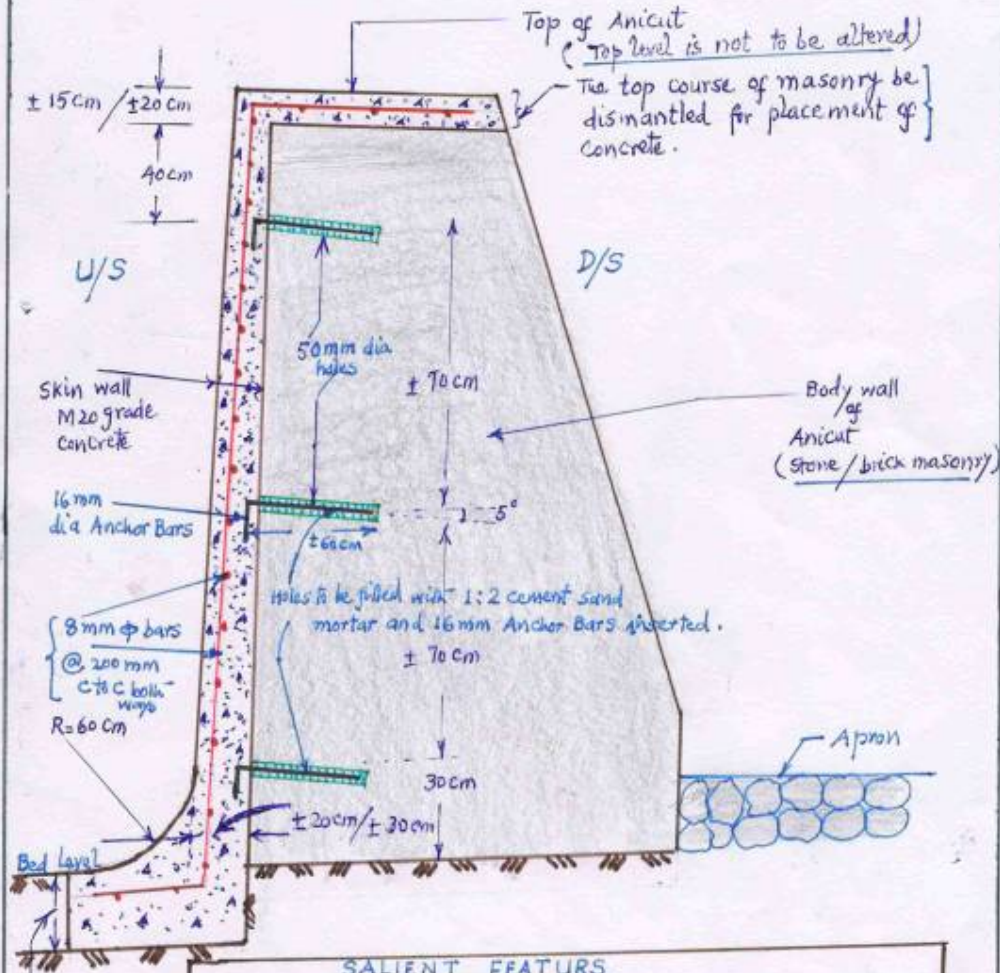 Top of Anicut
( Top level is not to be altered)
The top course of masonry be
dismantled for placement of
concrete.
± 15 cm / ±20 cm
40cm
U/S
D/S
50mm dia
holes
± 70 cm
Skin wall
M20 grade
concrete
Body wall
of
Anicut
(stone/brick masonry)
16 mm
dia Anchor Bars
5°
±60cm
Holes to be filled with 1:2 cement sand
mortar and 16mm Anchor Bars inserted.
± 70 cm
8mm ϕ bars
@ 200 mm
C to C both
ways
R=60 cm
Apron
30cm
±20cm/± 30cm
Bed Level
SALIENT FEATURS